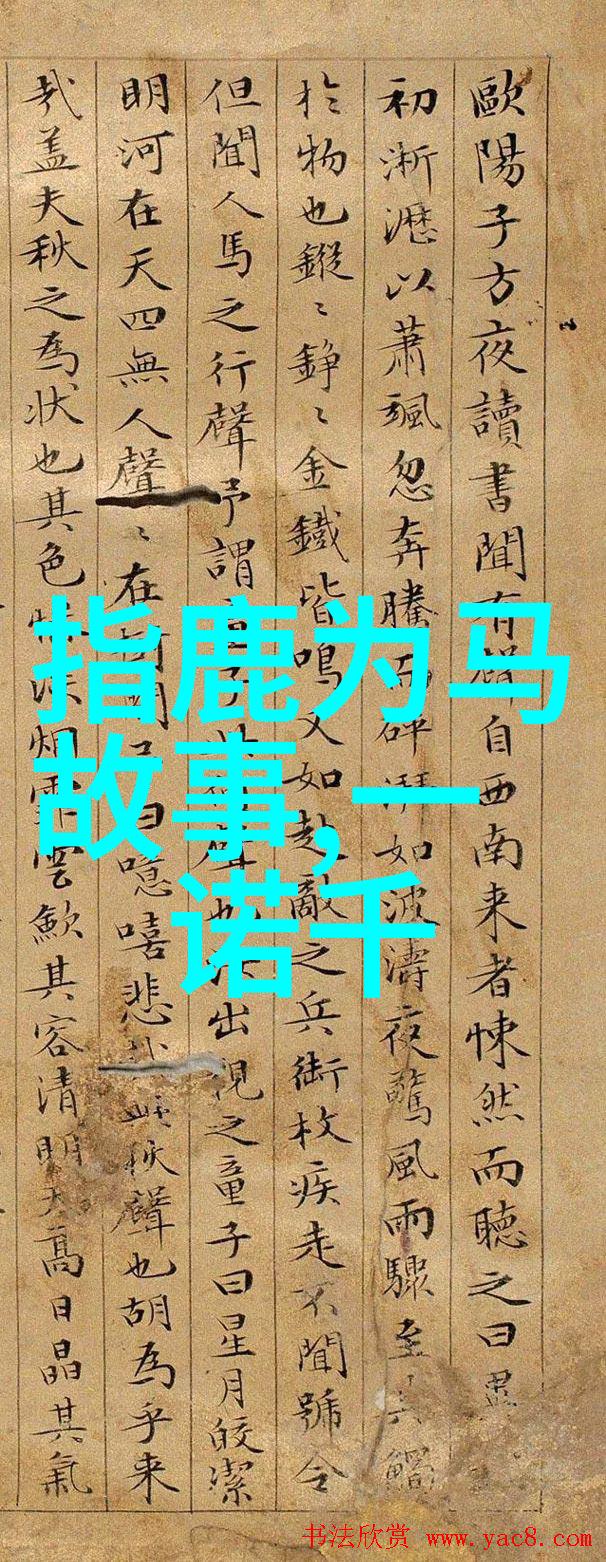 歐陽子方夜讀書聞有聲自西南来者悚然而聽之曰異
初淅瀝以蕭颯忽奔騰而砰湃如波濤夜驚風雨驟至其觸
於物也鏦〻錚〻金鐵皆鳴又如赴敵之兵銜枚疾走不聞號令
但聞人馬之行聲予謂童子此何聲也汝出視之童子曰星月皎潔
明河在天四無人聲〻在樹間予曰噫嘻悲哉秋聲也胡為乎来
哉盖夫秋之為状也其色惨淡烟霏雲歛其容清明天高日晶其氣
指鹿为马
故事,一
诺千
书法欣赏 www.yac8.com